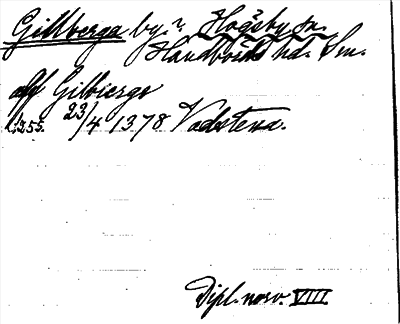 Gillberga by. i Högsby sn.
Handbörds hd. Sm.
aff Gilbierge
s. 255. 23/4 1378 Vadstena.
Dipl. norv. VIII.